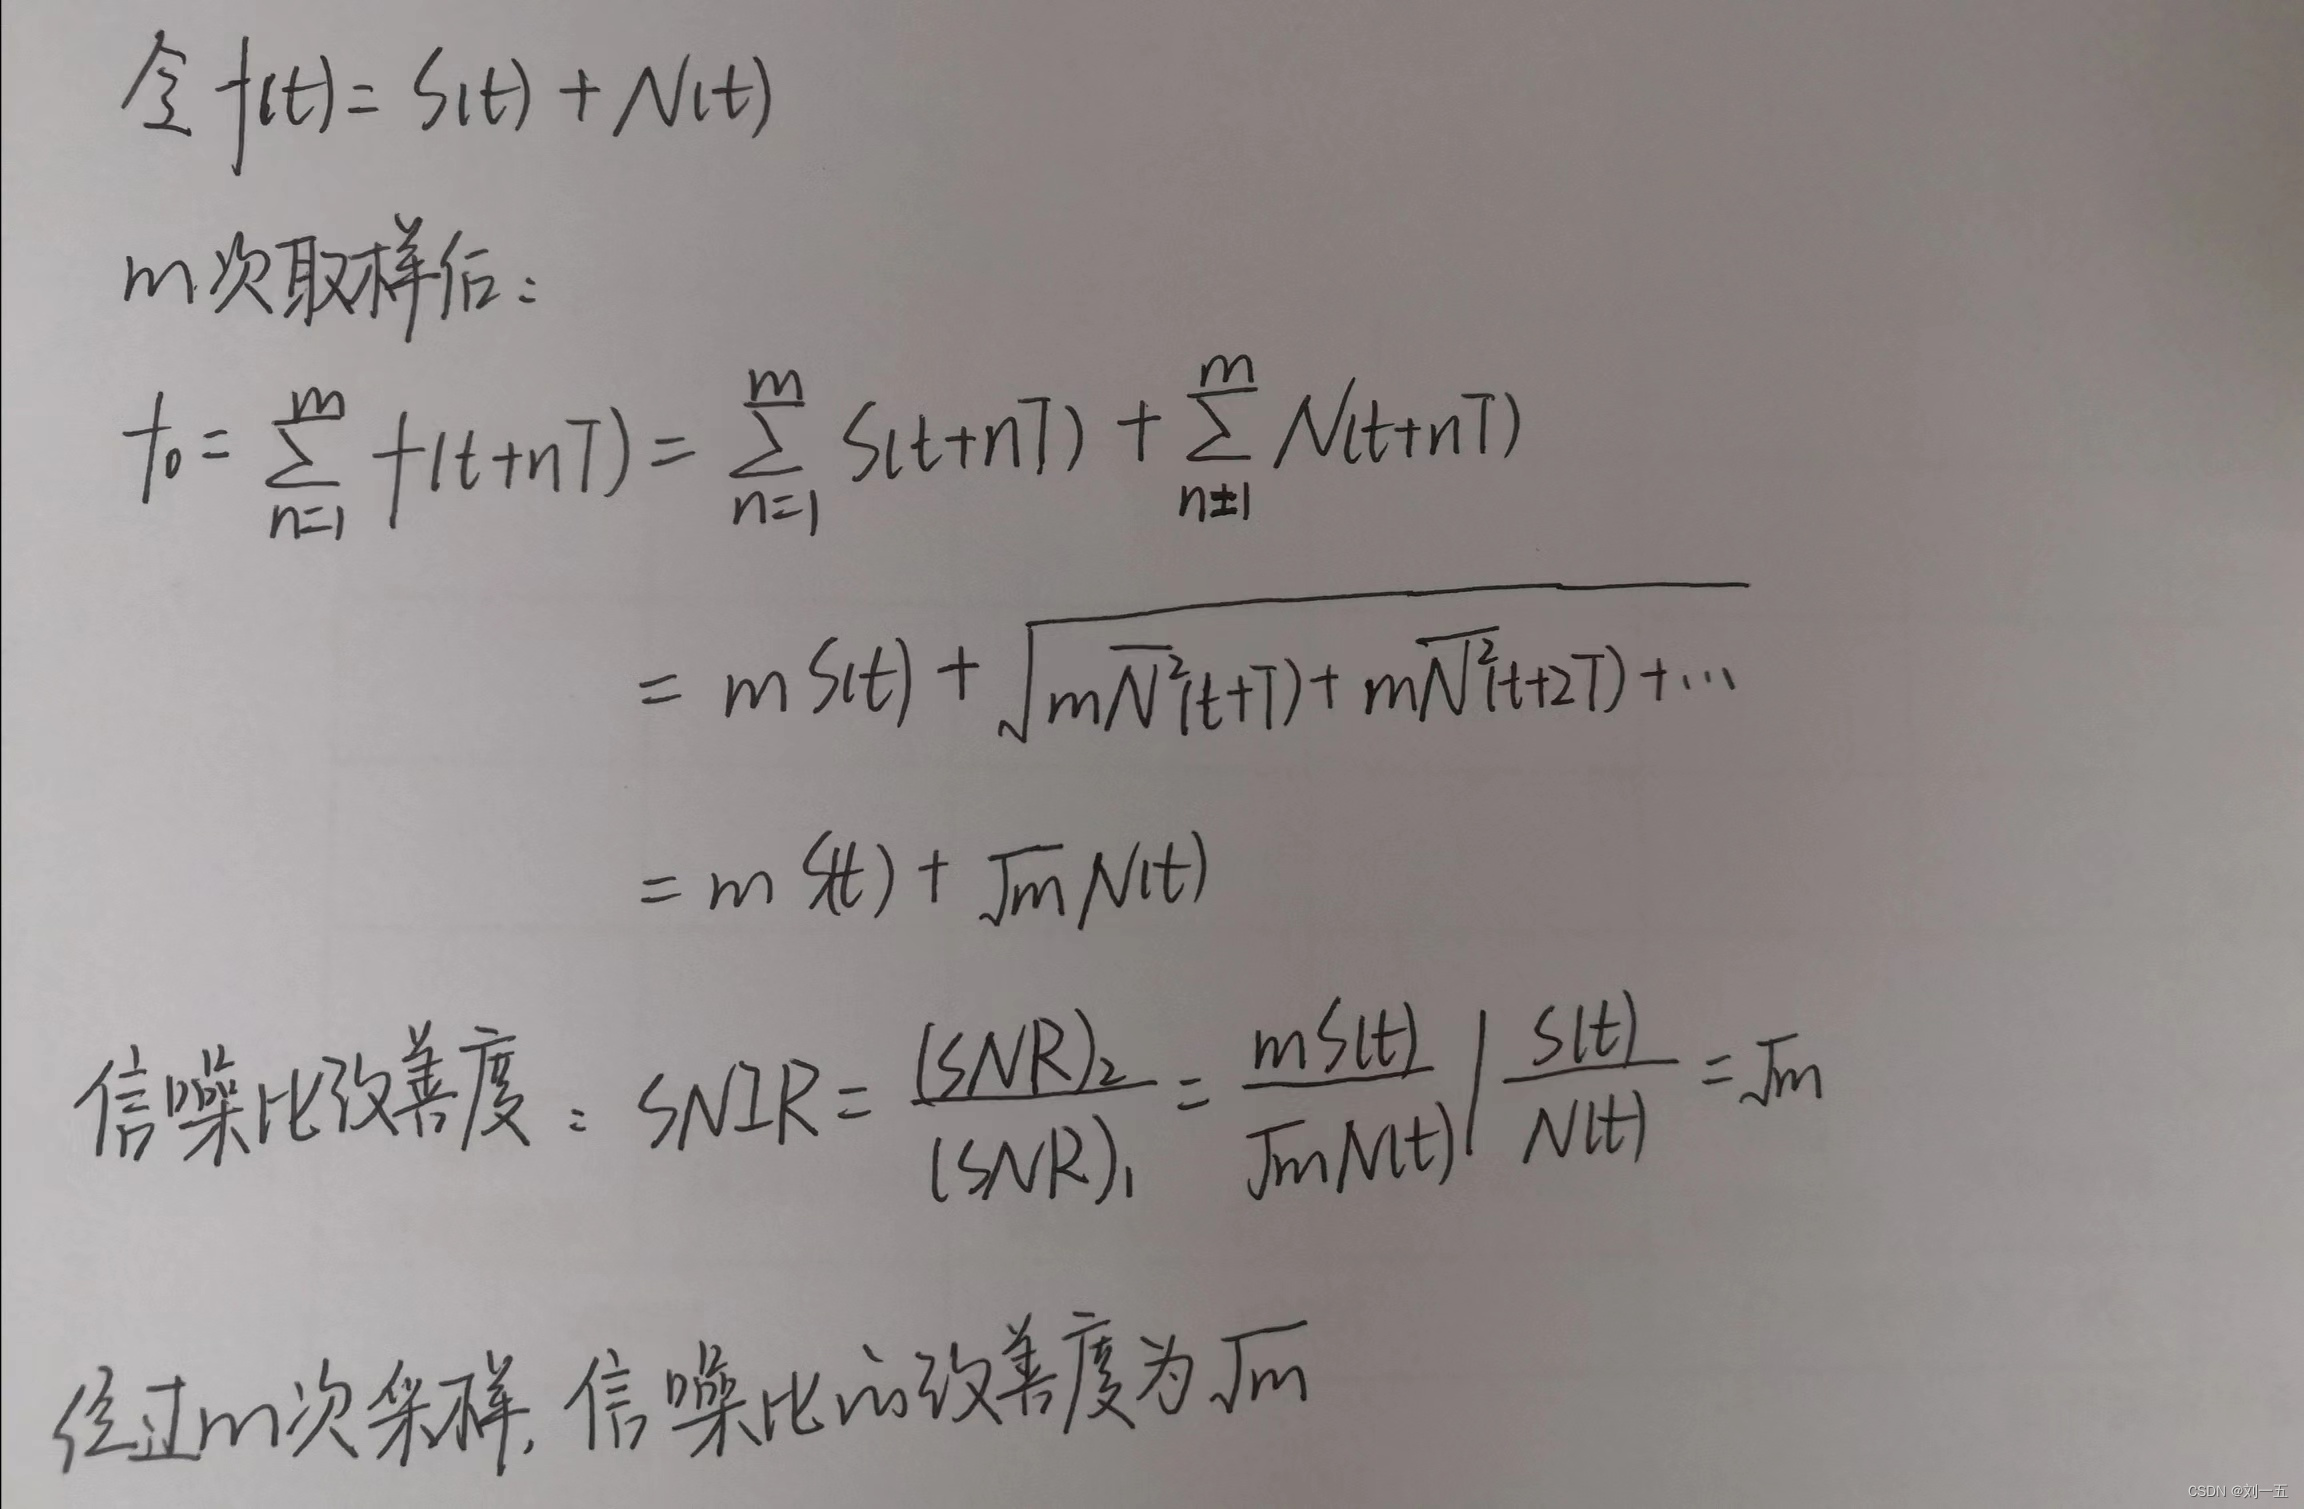 令 f(t) = S(t) + N(t)
m次取样后:
f₀ = ∑_{n=1}^{m} f(t+nT) = ∑_{n=1}^{m} S(t+nT) + ∑_{n=1}^{m} N(t+nT)
= m S(t) + √(m N̅²(t+T) + m N̅²(t+2T) + ⋯)
= m S(t) + √m N(t)
信噪比改善度: SNIR = (SNR)₂ / (SNR)₁ = mS(t) / √m N(t) / S(t) / N(t) = √m
经过m次采样,信噪比的改善度为√m
CSDN @刘一五